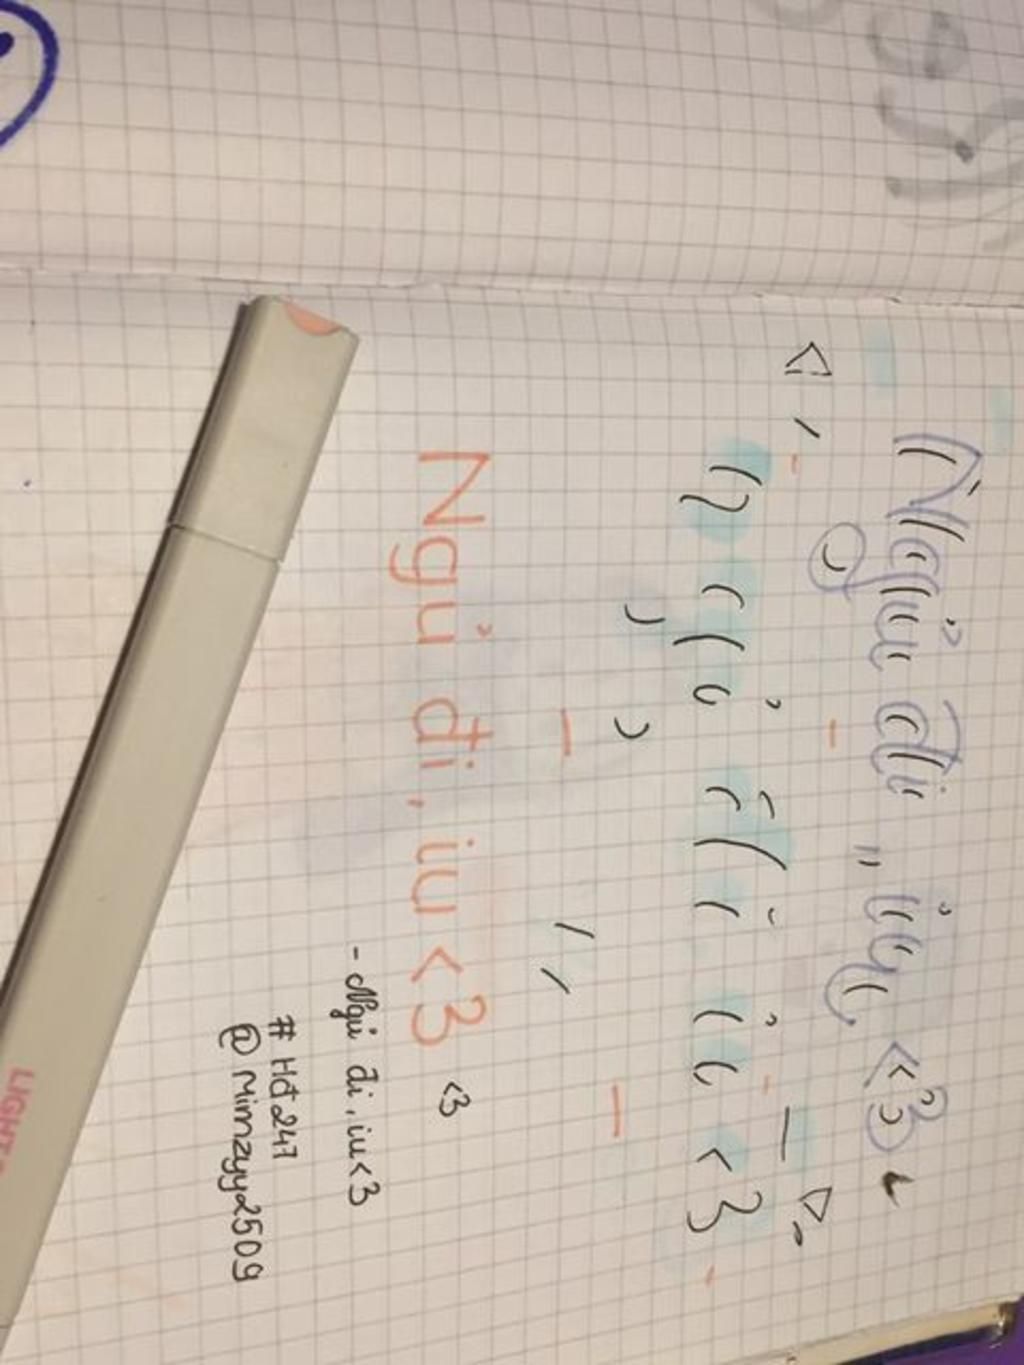 Ngủ đi, iu <3
Ngủ đi iu <3
Ngủ đi, iu <3
<3
- Ngủ đi, iu <3
# Hd247
@ Mimzyy2509
LIGHT